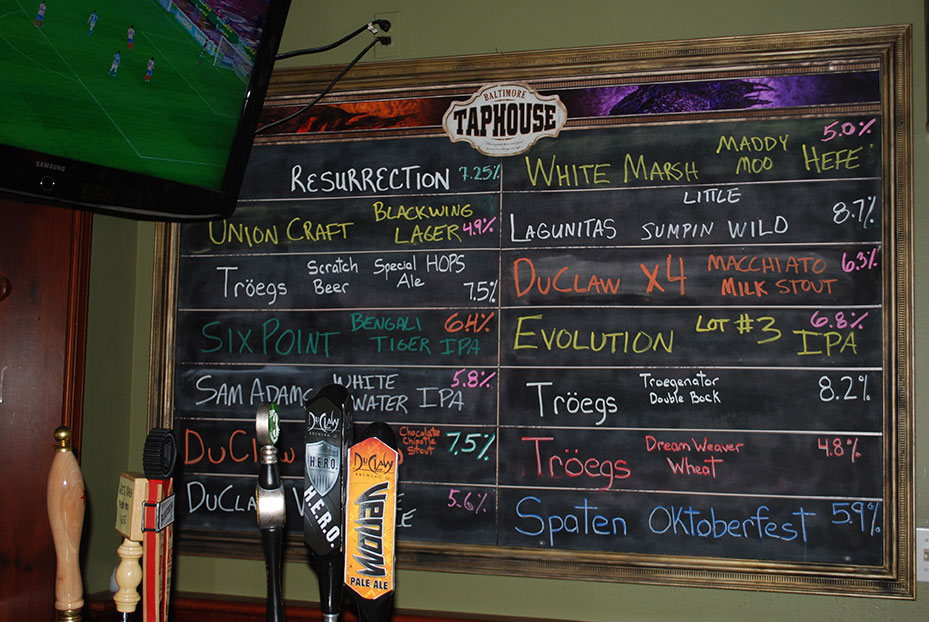 SAMSUNG
BALTIMORE
TAPHOUSE
RESURRECTION 7.25%
UNION CRAFT BLACKWING
LAGER 4.9%
Tröegs Scratch Beer Special HOPS Ale
7.5%
SIXPOINT BENGALI 6.4%
TIGER IPA
SAM ADAMS WHITE 5.8%
WATER IPA
DUCLAW Chocolate Chipotle Stout 7.5%
DUCLAW 5.6%
WHITE MARSH MADDY MOO HEFE 5.0%
LAGUNITAS LITTLE
SUMPIN WILD 8.7%
DUCLAW X4 MACCHIATO 6.3%
MILK STOUT
EVOLUTION LOT #3 6.8%
IPA
Tröegs Troegenator
Double Bock 8.2%
Tröegs Dream Weaver
Wheat 4.8%
Spaten Oktoberfest 5.9%
DUCLAW
BREWING
H.E.R.O.
H.E.R.O.
DUCLAW
BREWING
VENOM
PALE ALE